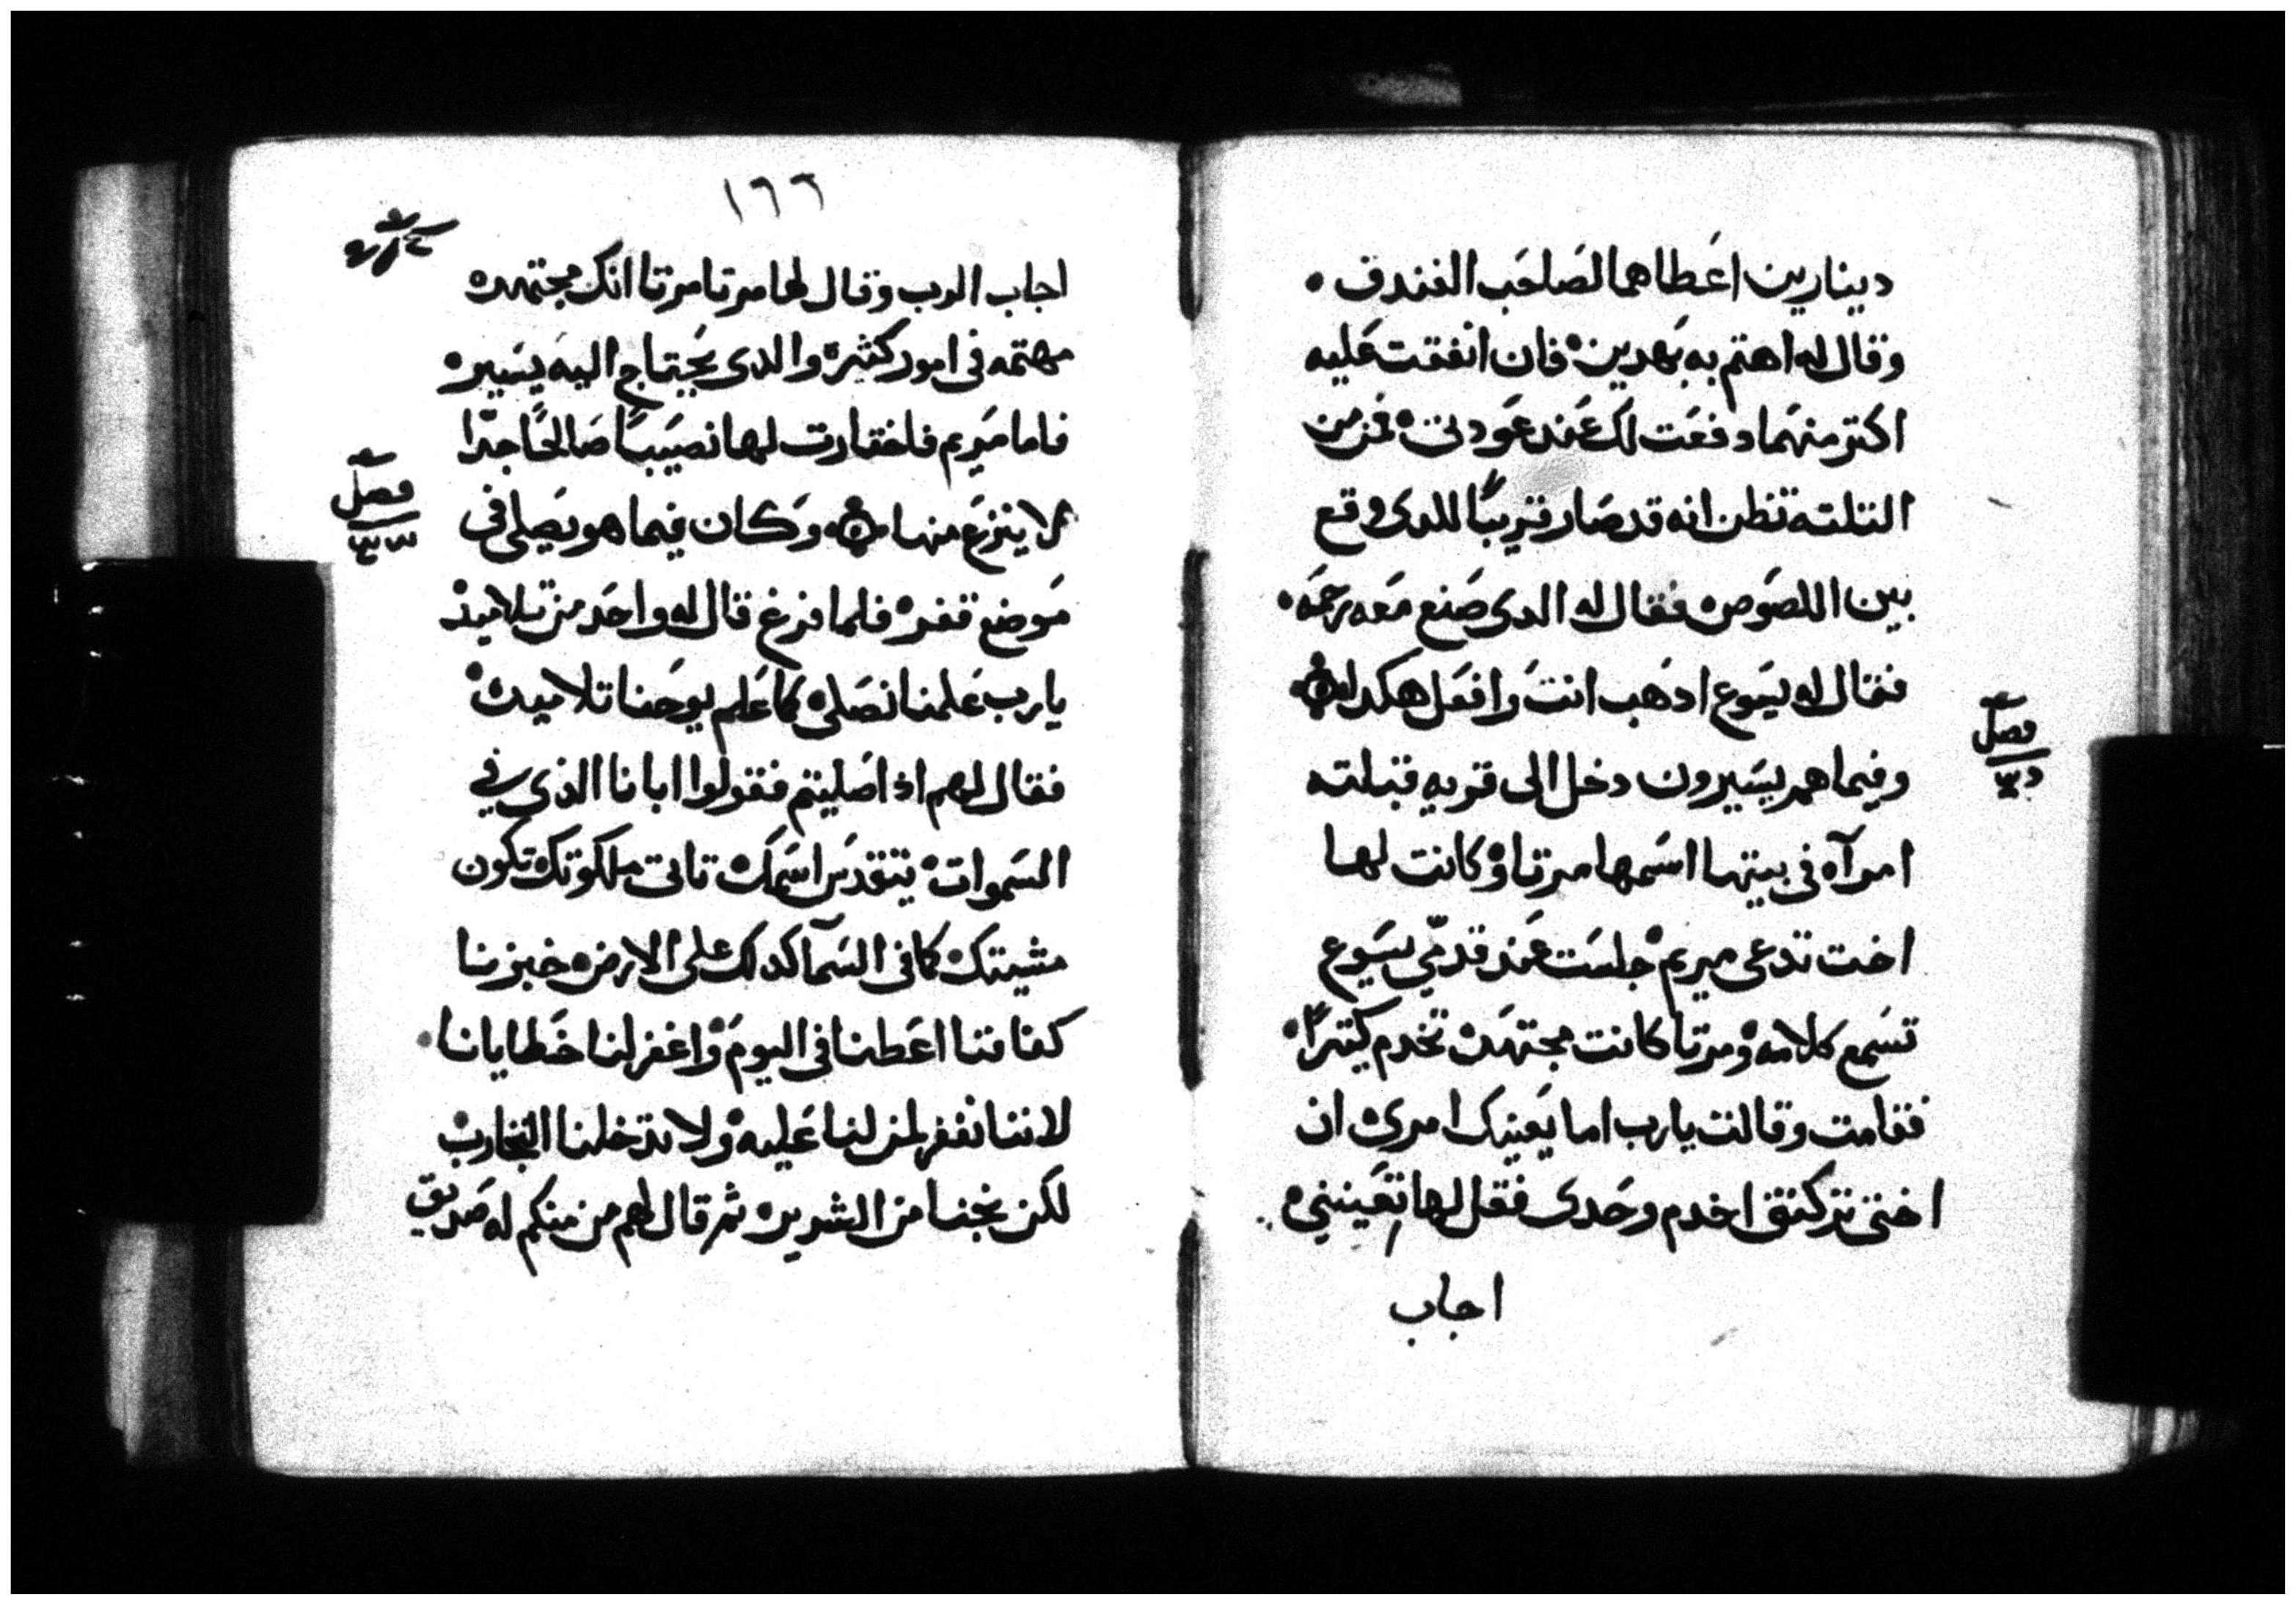 دينارين اعطاهما لصاحب الفندق ۰
وقال له اهتم به بهدين ۰ فان انفقت عليه
اكتر منهما دفعت لك عند عودتى ۰ فمن من
التلته تظن انه قد صار قريبًا للدى وقع
بين اللصوص ۰ فقال له الدى صنع معه رحمه ۰
فقال له يسوع ادهب انت وافعل هكدا
وفيما هم يسيرون دخل الى قريه قبلته
امرآه فى بيتها اسمها مرتا ۰ وكانت لها
اخت تدعى مريم ۰ جلست عند قدمّي يسوع
تسمع كلامه ۰ ومرتا كانت مجتهده تخدم كتيرًا ۰
فقامت وقالت يارب اما يعنيك امرى ان
اختى تركتنى اخدم وحدى فقل لها تعينني ۰
اجاب
فصل
١٦٦
اجاب الرب وقال لها مرتا مرتا انك مجتهده
مهتمه فى امور كثيره والدى يحتاج اليه يسير ۰
فاما مريم فاختارت لها نصيبًا صالحًا جدّا
لا ينزع منها ۰ وكان فيما هو يصلى فى
موضع قفر ۰ فلما فرغ قال له واحد من تلاميذه
يارب علمنا نصلى كما علم يوحنا تلاميده
فقال لهم اذا صليتم فقولوا ابانا الذى في
السموات ۰ يتقدس اسمك ۰ تاتى ملكوتك تكون
مشيتك ۰ كما فى السمآ كدلك على الارض ۰ خبزنا
كفافنا اعطنا فى اليوم ۰ واغفر لنا خطايانا ۰
لاننا نغفر لمن لنا عليه ۰ ولا تدخلنا التجارب
لكن نجنا من الشرير ۰ ثم قال لهم من منكم له صديق
فصل